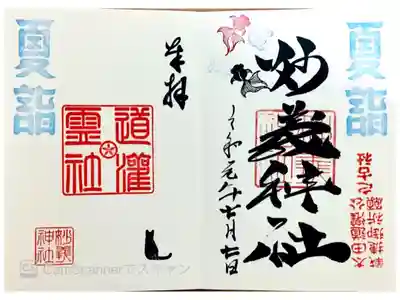 夏詣
妙義神社
令和元年七月七日
太田道灌公
戦捷御祈願
之古社
夏詣
奉拝
道灌
霊社
妙義
神社
CamScannerでスキャン